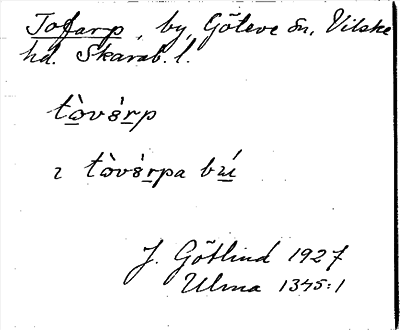 Tofarp, by, Göteve sn, Vilske
hd. Skarab. l.
tòvérp
ı tòvérpa bú
J. Götlind 1927
Ulma 1345:1